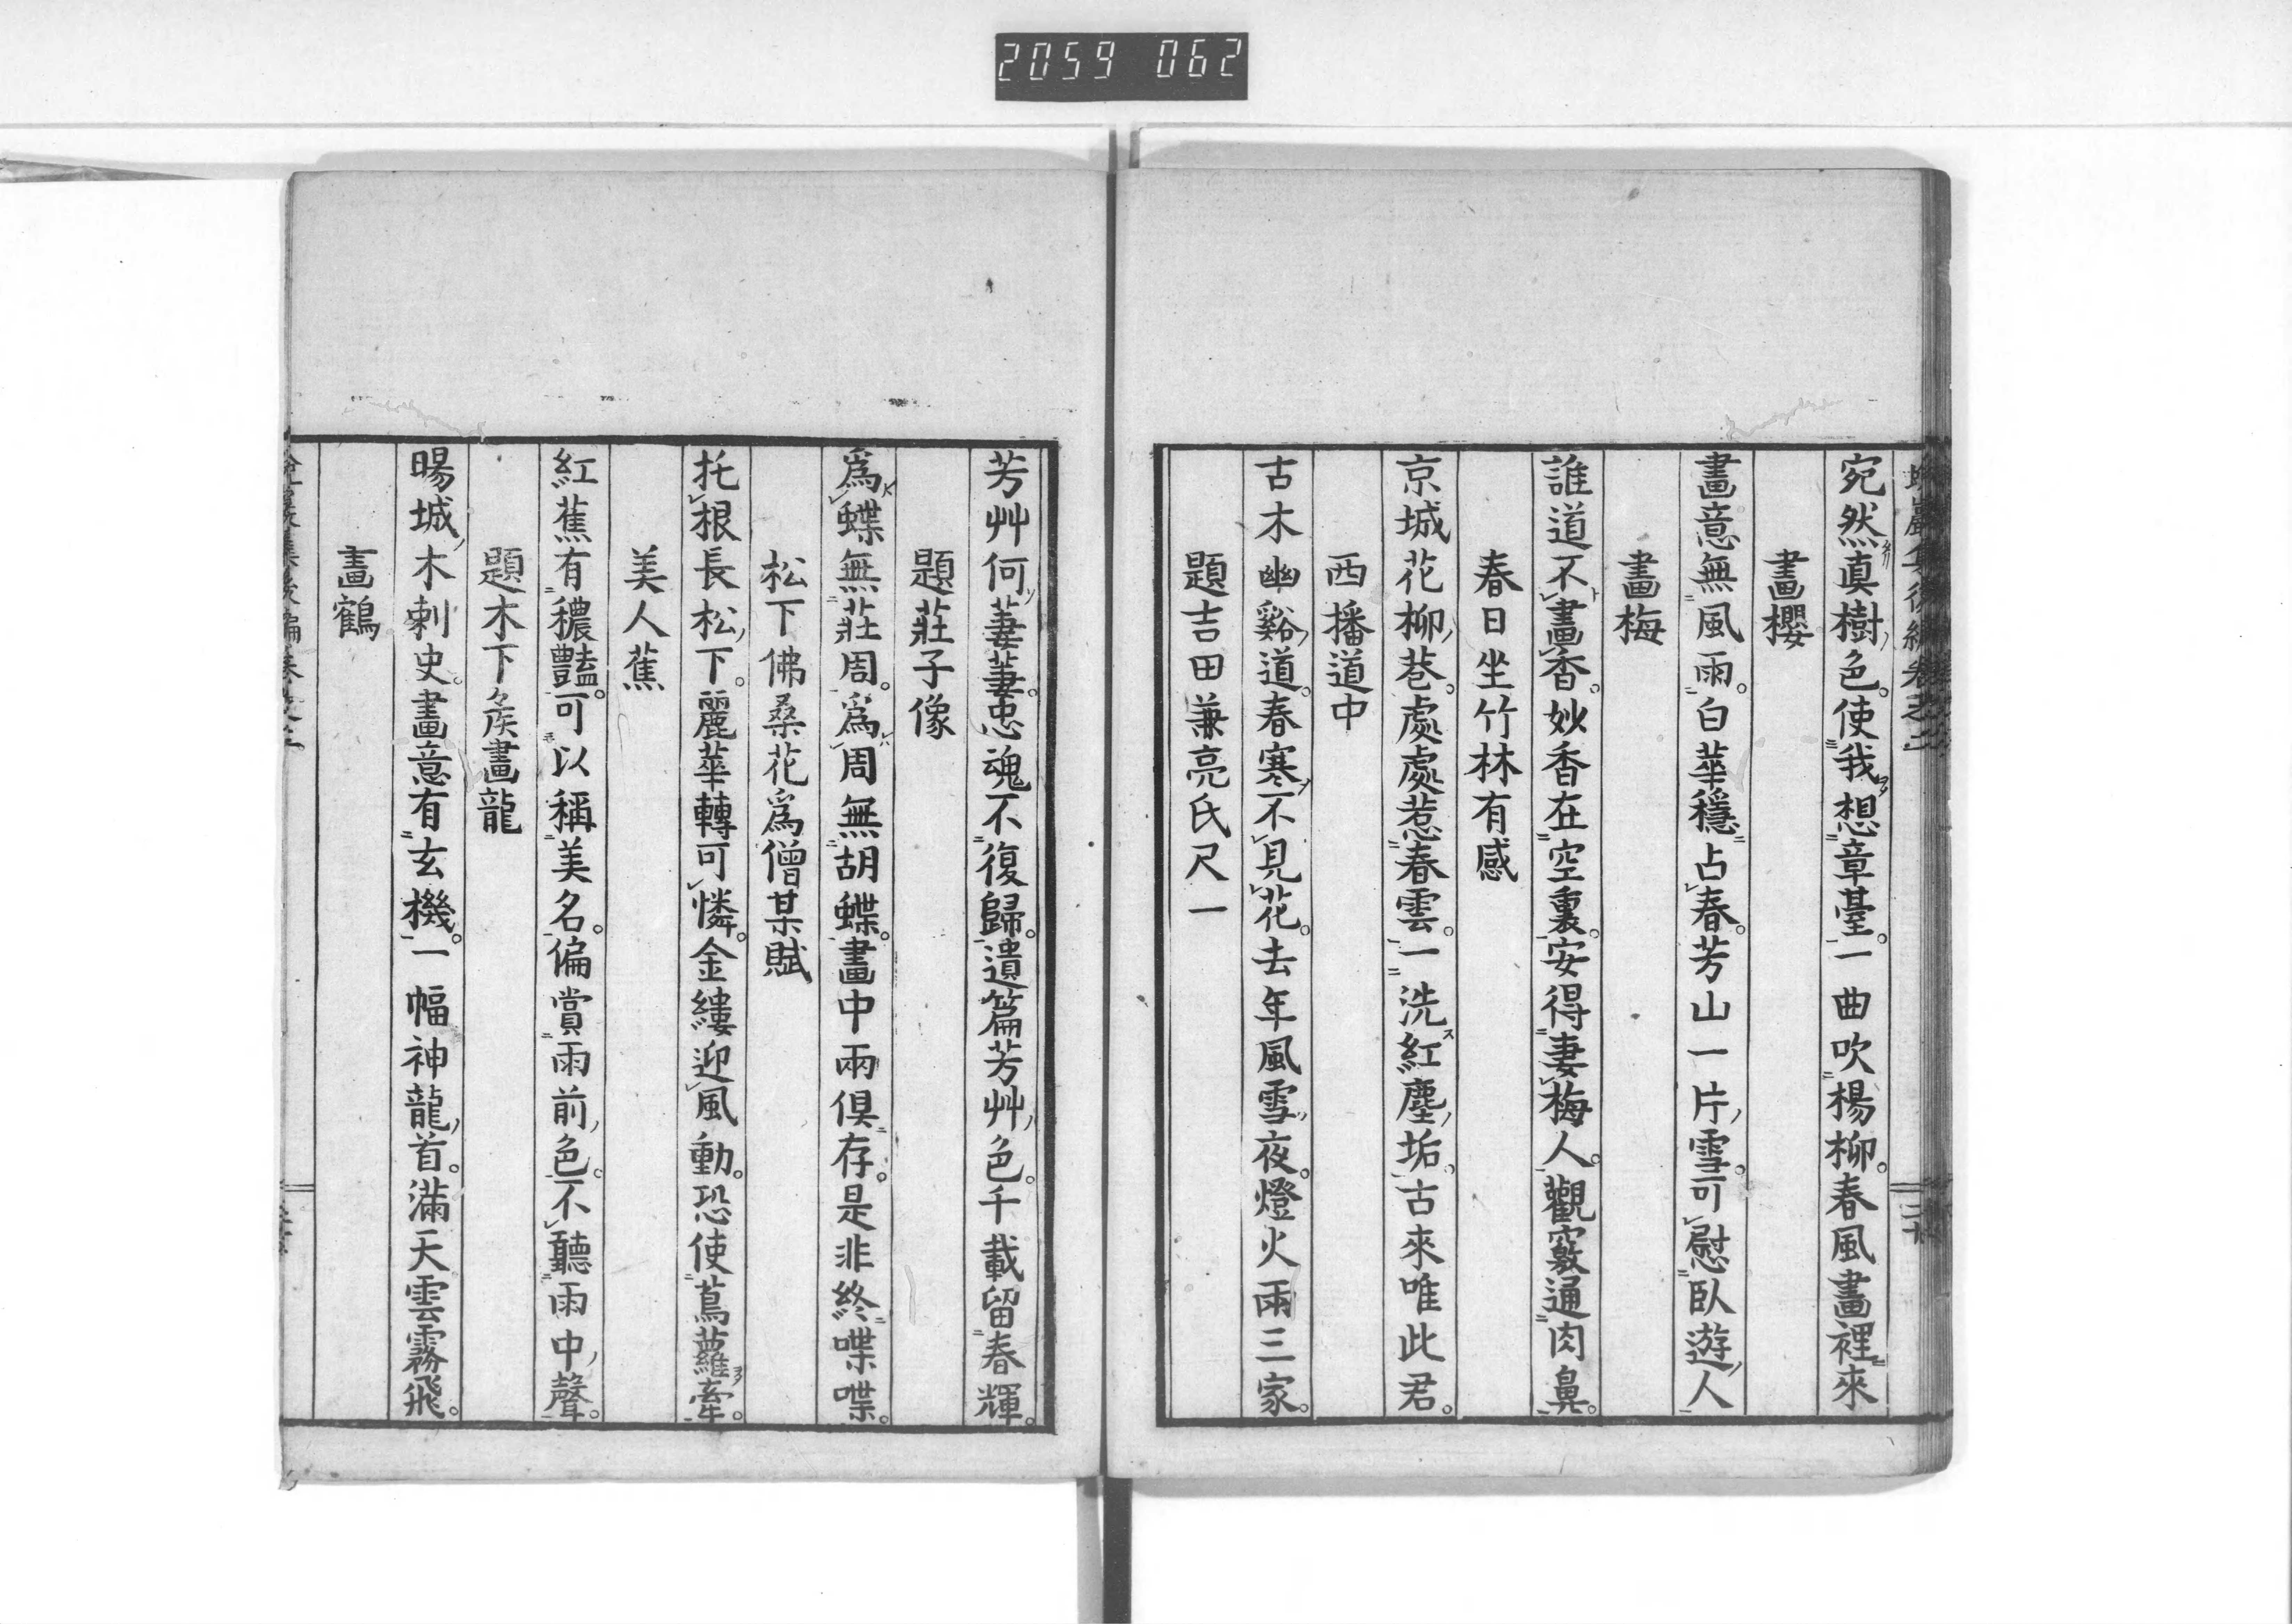 2059 062
宛然眞樹色。使我想章臺。一曲吹楊柳。春風畫裡來
畫櫻
畫意無風雨。白華穩占春。芳山一片雪。可慰臥遊人
畫梅
誰道不畫香。妙香在空裏。安得妻梅人。觀竅通肉鼻。
春日坐竹林有感
京城花柳巷。處處惹春雲。一洗紅塵垢。古來唯此君。
西播道中
古木幽谿道。春寒不見花。去年風雪夜。燈火兩三家。
題吉田兼亮氏尺一
芳艸何萋萋。忠魂不復歸。遺篇芳艸色。千載留春輝。
題莊子像
爲蝶無莊周。爲周無胡蝶。畫中兩俱存。是非終喋喋。
松下佛桑花爲僧某賦
托根長松下。麗華轉可憐。金縷迎風動。恐使蔦蘿牽。
美人蕉
紅蕉有穠豔。可以稱美名。偏賞雨前色。不聽雨中聲。
題木下矦畫龍
暘城木刺史。畫意有玄機。一幅神龍首。滿天雲霧飛。
畫鶴